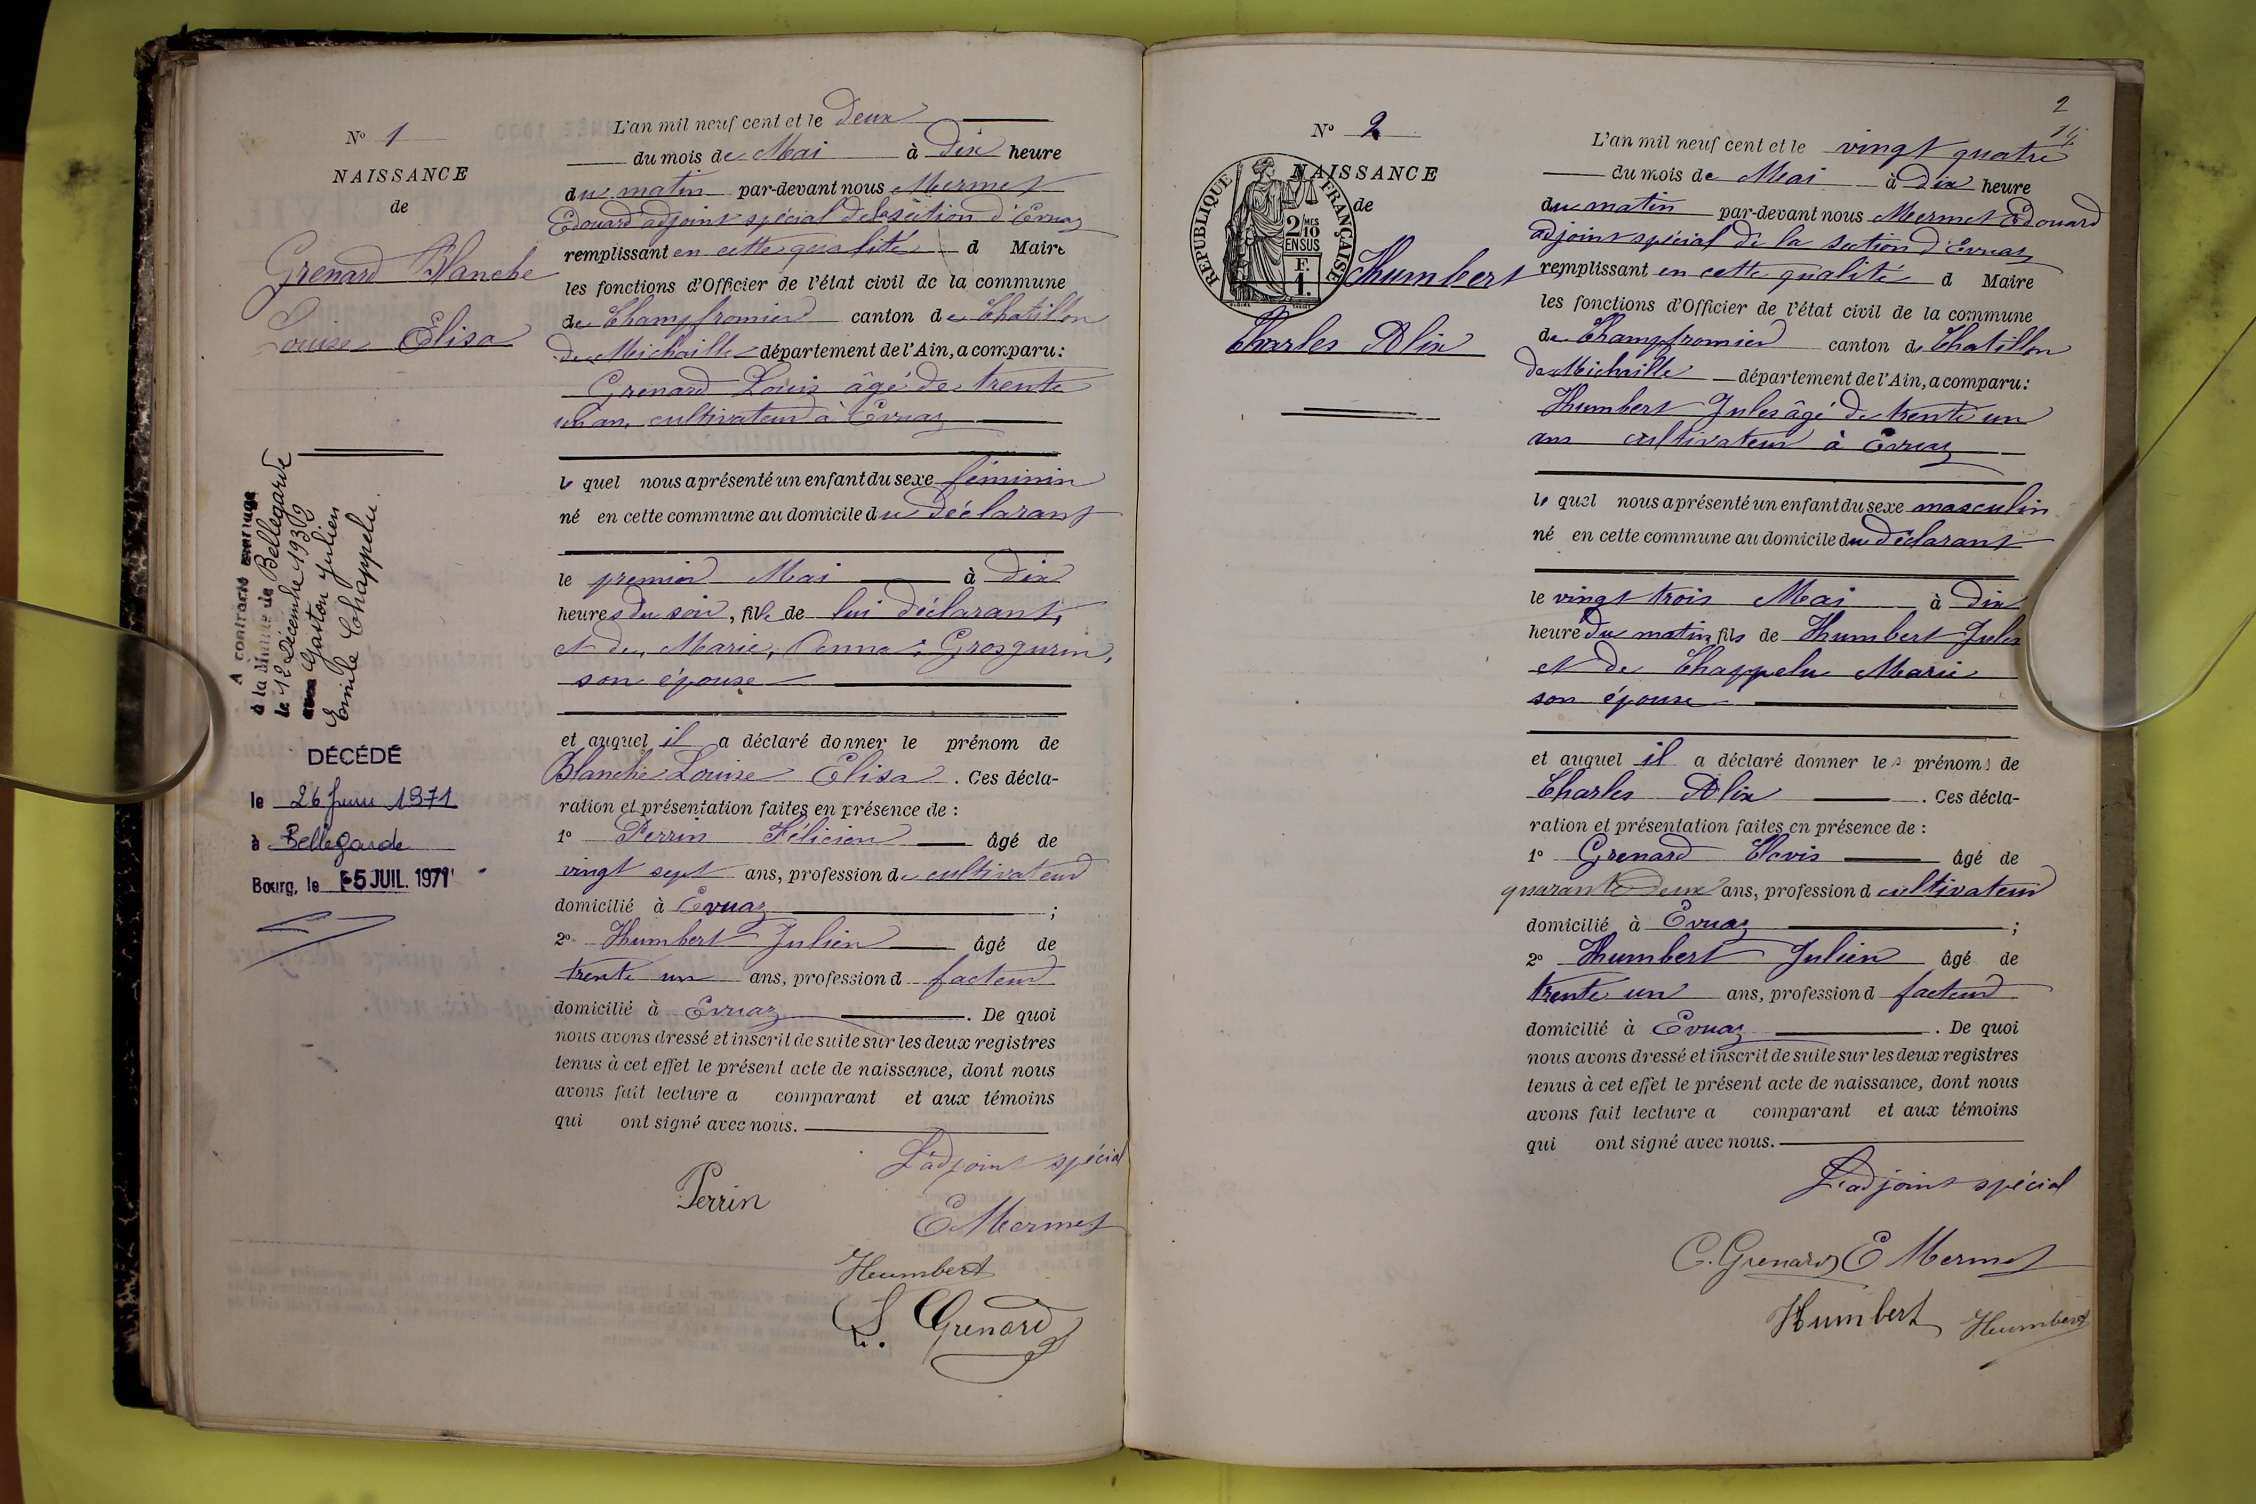 N° 1
NAISSANCE
de
Grenard Blanche
Louise Elisa
A contracté mariage
à la Mairie de Bellegarde
le 12 Décembre 1936
avec Gaston Julien
Emile Chappelu.
DÉCÉDÉ
le 26 juin 1971
à Bellegarde
Bourg, le 5 JUIL. 1971
L'an mil neuf cent et le deux
du mois de Mai à dix heure
du matin par-devant nous Mermet
Edouard adjoint spécial de la section d'Evuaz
remplissant en cette qualité d Maire
les fonctions d'Officier de l'état civil de la commune
de Champfromier canton de Chatillon
de Michaille département de l'Ain, a comparu:
Grenard Louis âgé de trente
un an, cultivateur à Evuaz
le quel nous a présenté un enfant du sexe féminin
né en cette commune au domicile du déclarant
le premier Mai à dix
heures du soir, fille de lui déclarant,
et de, Marie, Anna, Grosgurin,
son épouse
et auquel il a déclaré donner le prénom de
Blanche Louise Elisa. Ces décla-
ration et présentation faites en présence de :
1° Perrin Félicien âgé de
vingt sept ans, profession de cultivateur
domicilié à Evuaz ;
2° Humbert Julien âgé de
trente un ans, profession d facteur
domicilié à Evuaz . De quoi
nous avons dressé et inscrit de suite sur les deux registres
tenus à cet effet le présent acte de naissance, dont nous
avons fait lecture a comparant et aux témoins
qui ont signé avec nous.
L'adjoint spécial
Perrin
E Mermet
Humbert
L. Grenard
2
N° 2
NAISSANCE
de
RÉPUBLIQUE FRANÇAISE
2/10 MES
EN SUS
F.
1.
Humbert
Charles Alix
L'an mil neuf cent et le vingt quatre
du mois de Mai à dix heure
du matin par-devant nous Mermet Edouard
adjoint spécial de la section d'Evuaz
remplissant en cette qualité d Maire
les fonctions d'Officier de l'état civil de la commune
de Champfromier canton de Chatillon
de Michaille département de l'Ain, a comparu:
Humbert Jules âgé de trente un
ans cultivateur à Evuaz
le quel nous a présenté un enfant du sexe masculin
né en cette commune au domicile du déclarant
le vingt trois Mai à dix
heure du matin, fils de Humbert Jules
et de Chappelu Marie
son épouse
et auquel il a déclaré donner les prénoms de
Charles Alix . Ces décla-
ration et présentation faites en présence de :
1° Grenard Clovis âgé de
quarante deux ans, profession d cultivateur
domicilié à Evuaz ;
2° Humbert Julien âgé de
trente un ans, profession d facteur
domicilié à Evuaz . De quoi
nous avons dressé et inscrit de suite sur les deux registres
tenus à cet effet le présent acte de naissance, dont nous
avons fait lecture a comparant et aux témoins
qui ont signé avec nous.
L'adjoint spécial
C. Grenard E Mermet
Humbert Humbert